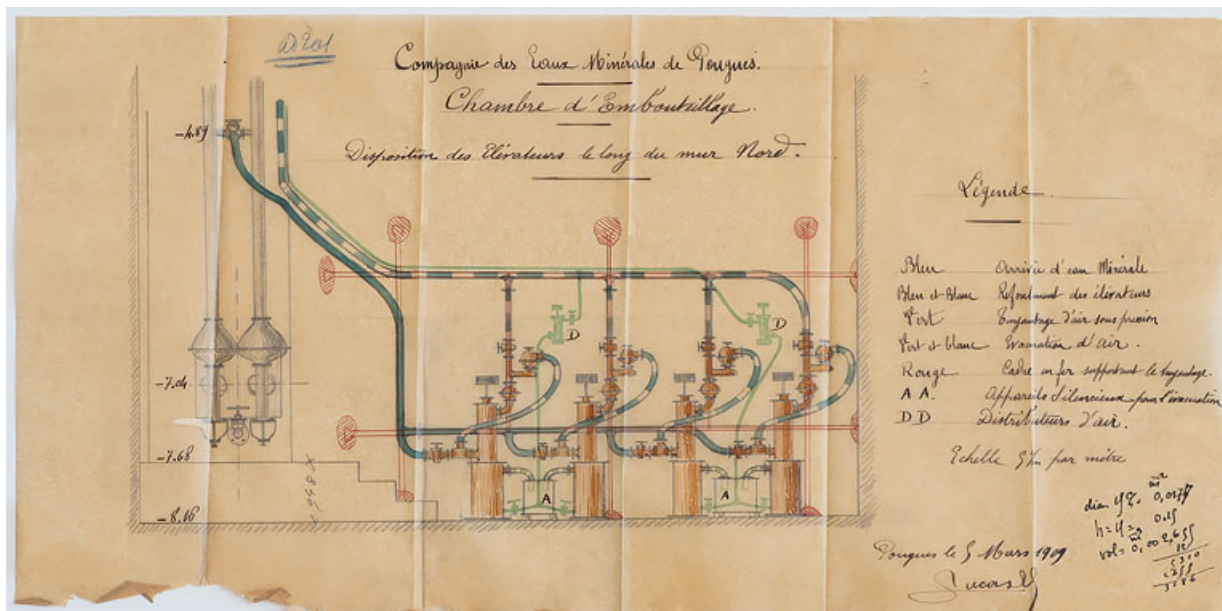 Compagnie des Eaux Minérales de Pougues.
Chambre d'Embouteillage.
Disposition des Elévateurs le long du mur Nord.
-4.89
-7.04
-7.68
-8.16
D
D
A
A
Légende.
Bleu Arrivée d'eau Minérale
Bleu et Blanc Refoulement des élévateurs
Vert Tuyautage d'air sous pression
Vert et blanc Evacuation d'air.
Rouge Cadre en fer supportant le tuyautage.
A A. Appareils Silencieux pour l'évacuation
D D Distributeurs d'air.
Echelle par mètre
Pougues le 5 Mars 1909